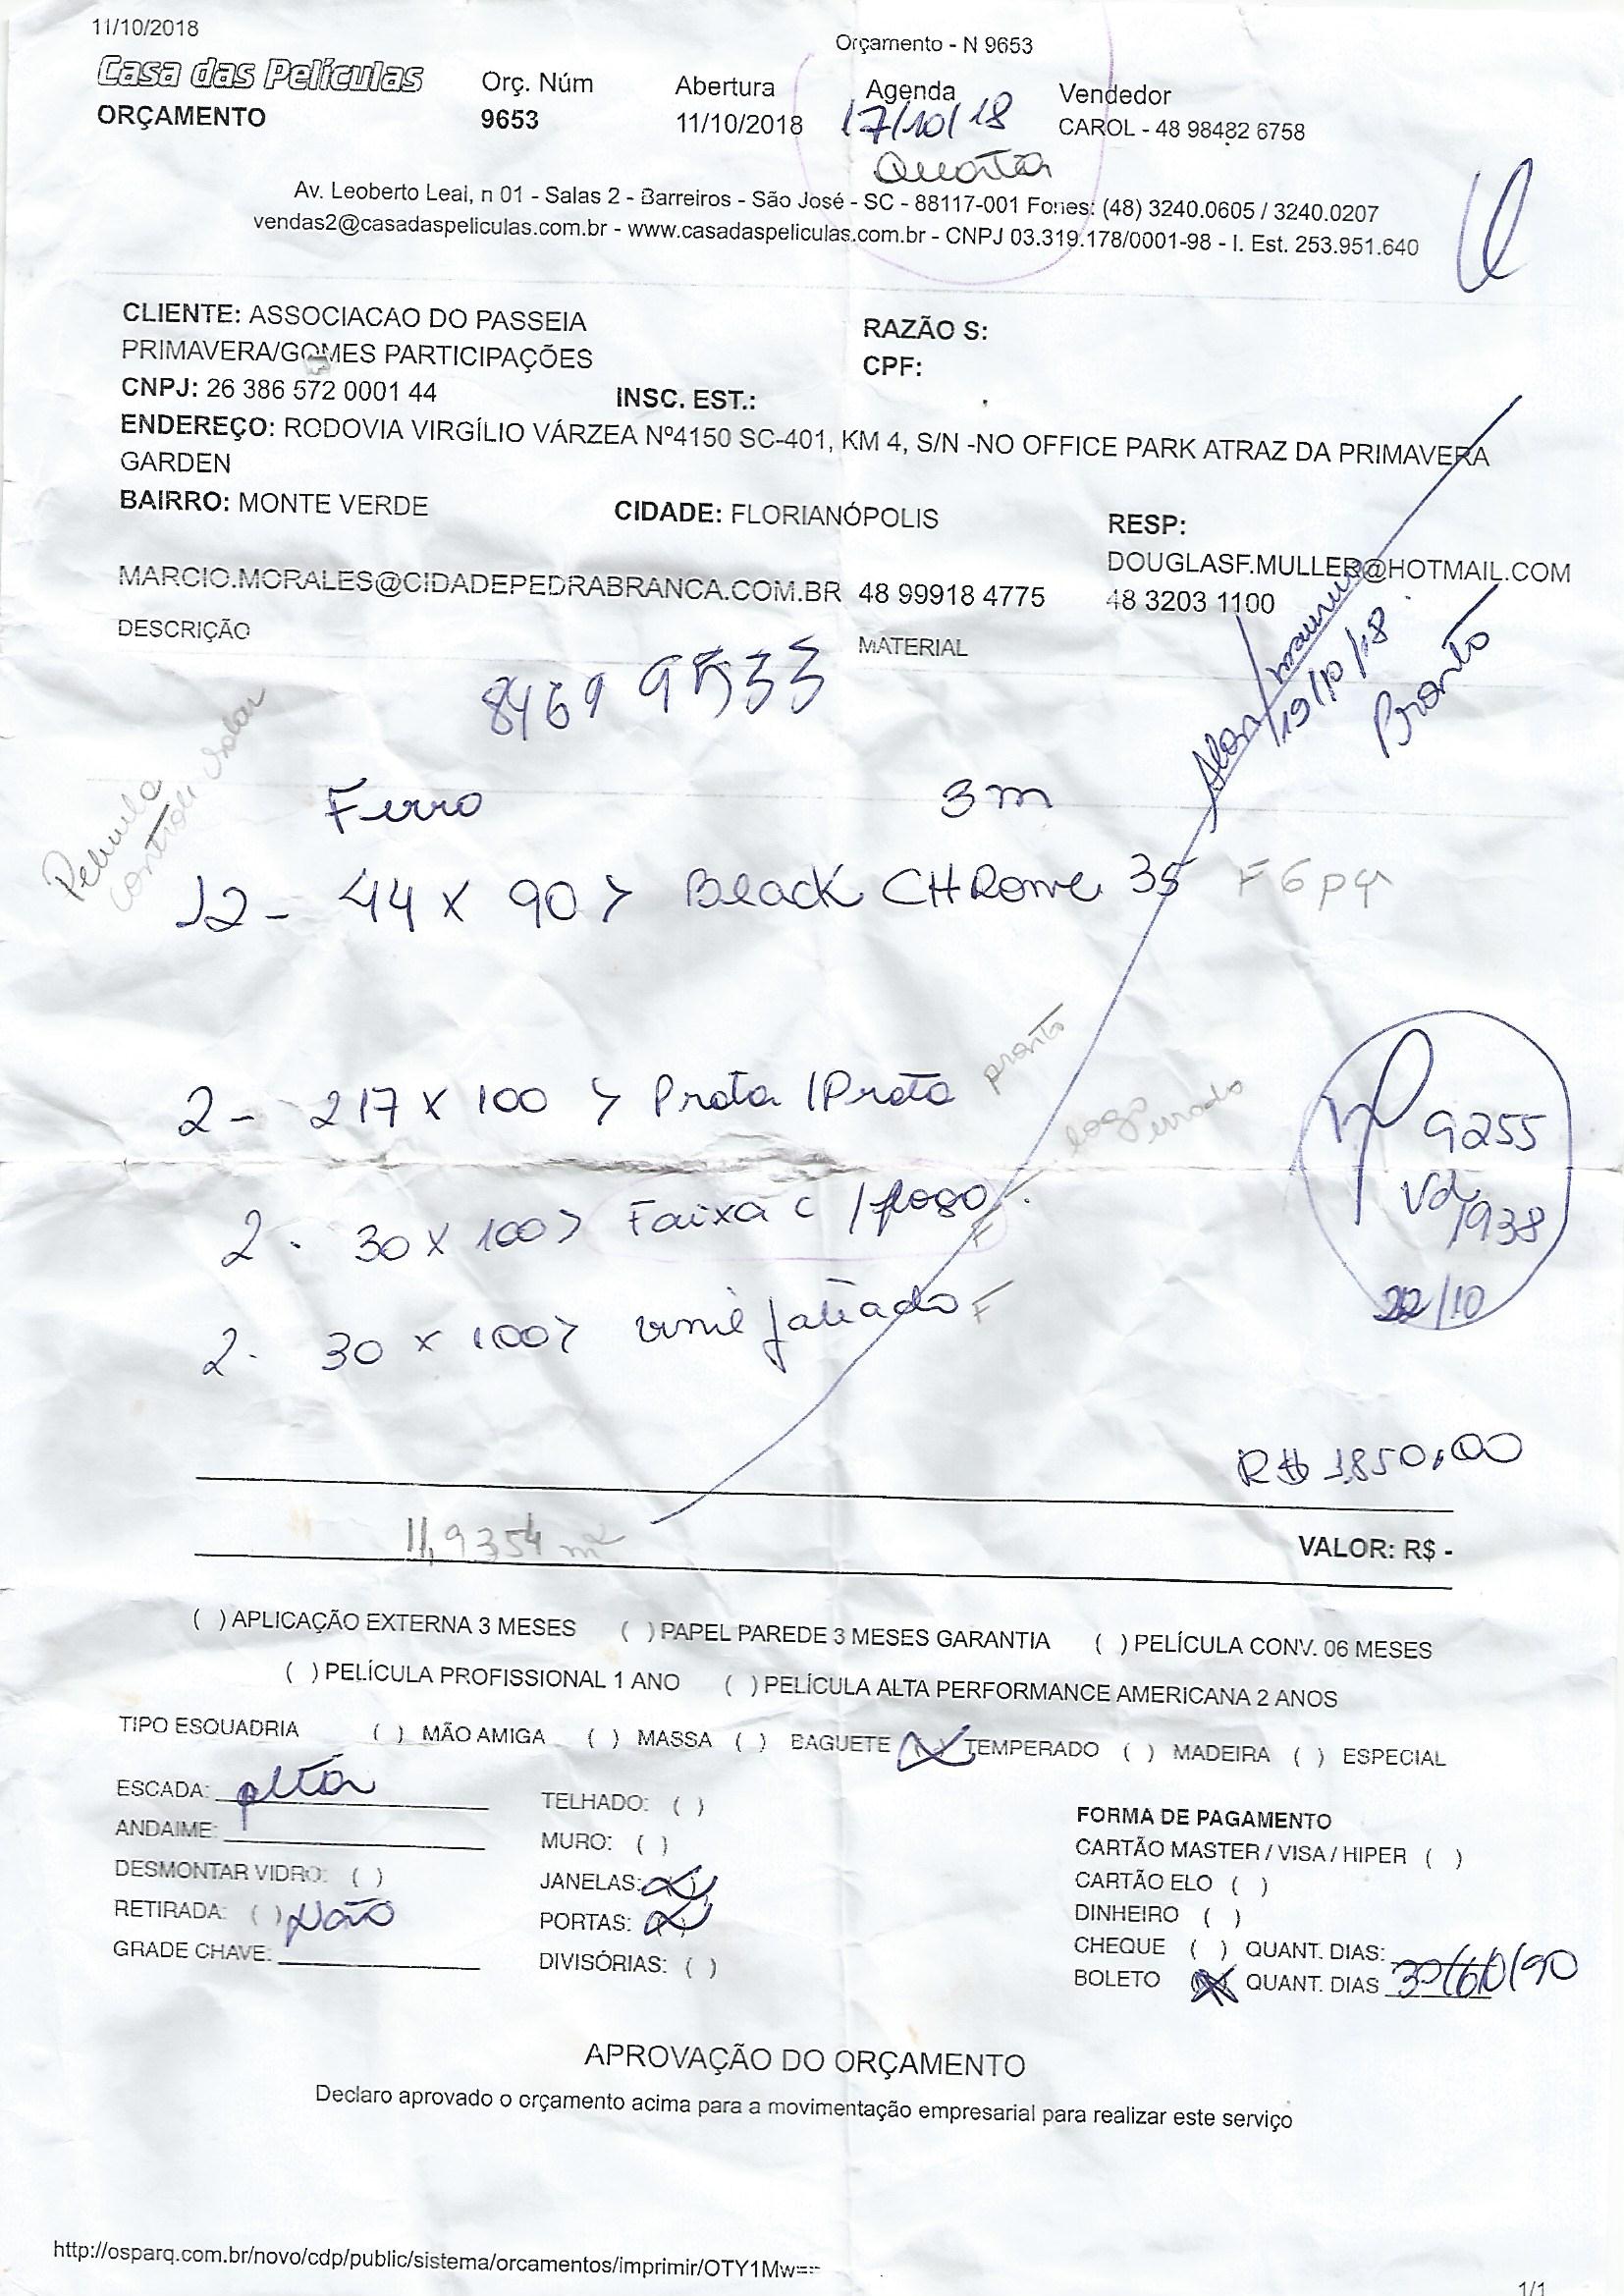 11/10/2018
Orçamento - N 9653
Casa das Películas
Orç. Núm
Abertura
Agenda
Vendedor
ORÇAMENTO
9653
11/10/2018
17/10/18
CAROL - 48 98482 6758
Quarta
Av. Leoberto Leal, n 01 - Salas 2 - Barreiros - São José - SC - 88117-001 Fones: (48) 3240.0605 / 3240.0207
vendas2@casadaspeliculas.com.br - www.casadaspeliculas.com.br - CNPJ 03.319.178/0001-98 - I. Est. 253.951.640
CLIENTE: ASSOCIACAO DO PASSEIA
PRIMAVERA/GOMES PARTICIPAÇÕES
RAZÃO S:
CPF:
CNPJ: 26 386 572 0001 44
INSC. EST.:
ENDEREÇO: RODOVIA VIRGÍLIO VÁRZEA Nº4150 SC-401, KM 4, S/N -NO OFFICE PARK ATRAZ DA PRIMAVERA
GARDEN
BAIRRO: MONTE VERDE
CIDADE: FLORIANÓPOLIS
RESP:
DOUGLASF.MULLER@HOTMAIL.COM
MARCIO.MORALES@CIDADEPEDRABRANCA.COM.BR 48 99918 4775
48 3203 1100
DESCRIÇÃO
MATERIAL
8469 9533
19/10/18
Pronto
Pelicula
controle solar
Ferro
3m
12 - 44 x 90 > Black CHRome 35 F 6 pç
2 - 217 x 100 > Prata / Prata pronto
logo errado
2 - 30 x 100 > Faixa c / logo F
2 - 30 x 100 > vinil jateado F
9255
Vd 1938
22/10
R$ 1.850,00
11,9354 m²
VALOR: R$ -
( ) APLICAÇÃO EXTERNA 3 MESES ( ) PAPEL PAREDE 3 MESES GARANTIA ( ) PELÍCULA CONV. 06 MESES
( ) PELÍCULA PROFISSIONAL 1 ANO ( ) PELÍCULA ALTA PERFORMANCE AMERICANA 2 ANOS
TIPO ESQUADRIA ( ) MÃO AMIGA ( ) MASSA ( ) BAGUETE (X) TEMPERADO ( ) MADEIRA ( ) ESPECIAL
ESCADA: alta
ANDAIME:
DESMONTAR VIDRO: ( )
RETIRADA: ( ) Não
GRADE CHAVE:
TELHADO: ( )
MURO: ( )
JANELAS: (X)
PORTAS: (X)
DIVISÓRIAS: ( )
FORMA DE PAGAMENTO
CARTÃO MASTER / VISA / HIPER ( )
CARTÃO ELO ( )
DINHEIRO ( )
CHEQUE ( ) QUANT. DIAS:
BOLETO (X) QUANT. DIAS 30/60/90
APROVAÇÃO DO ORÇAMENTO
Declaro aprovado o orçamento acima para a movimentação empresarial para realizar este serviço
http://osparq.com.br/novo/cdp/public/sistema/orcamentos/imprimir/OTY1Mw==
1/1